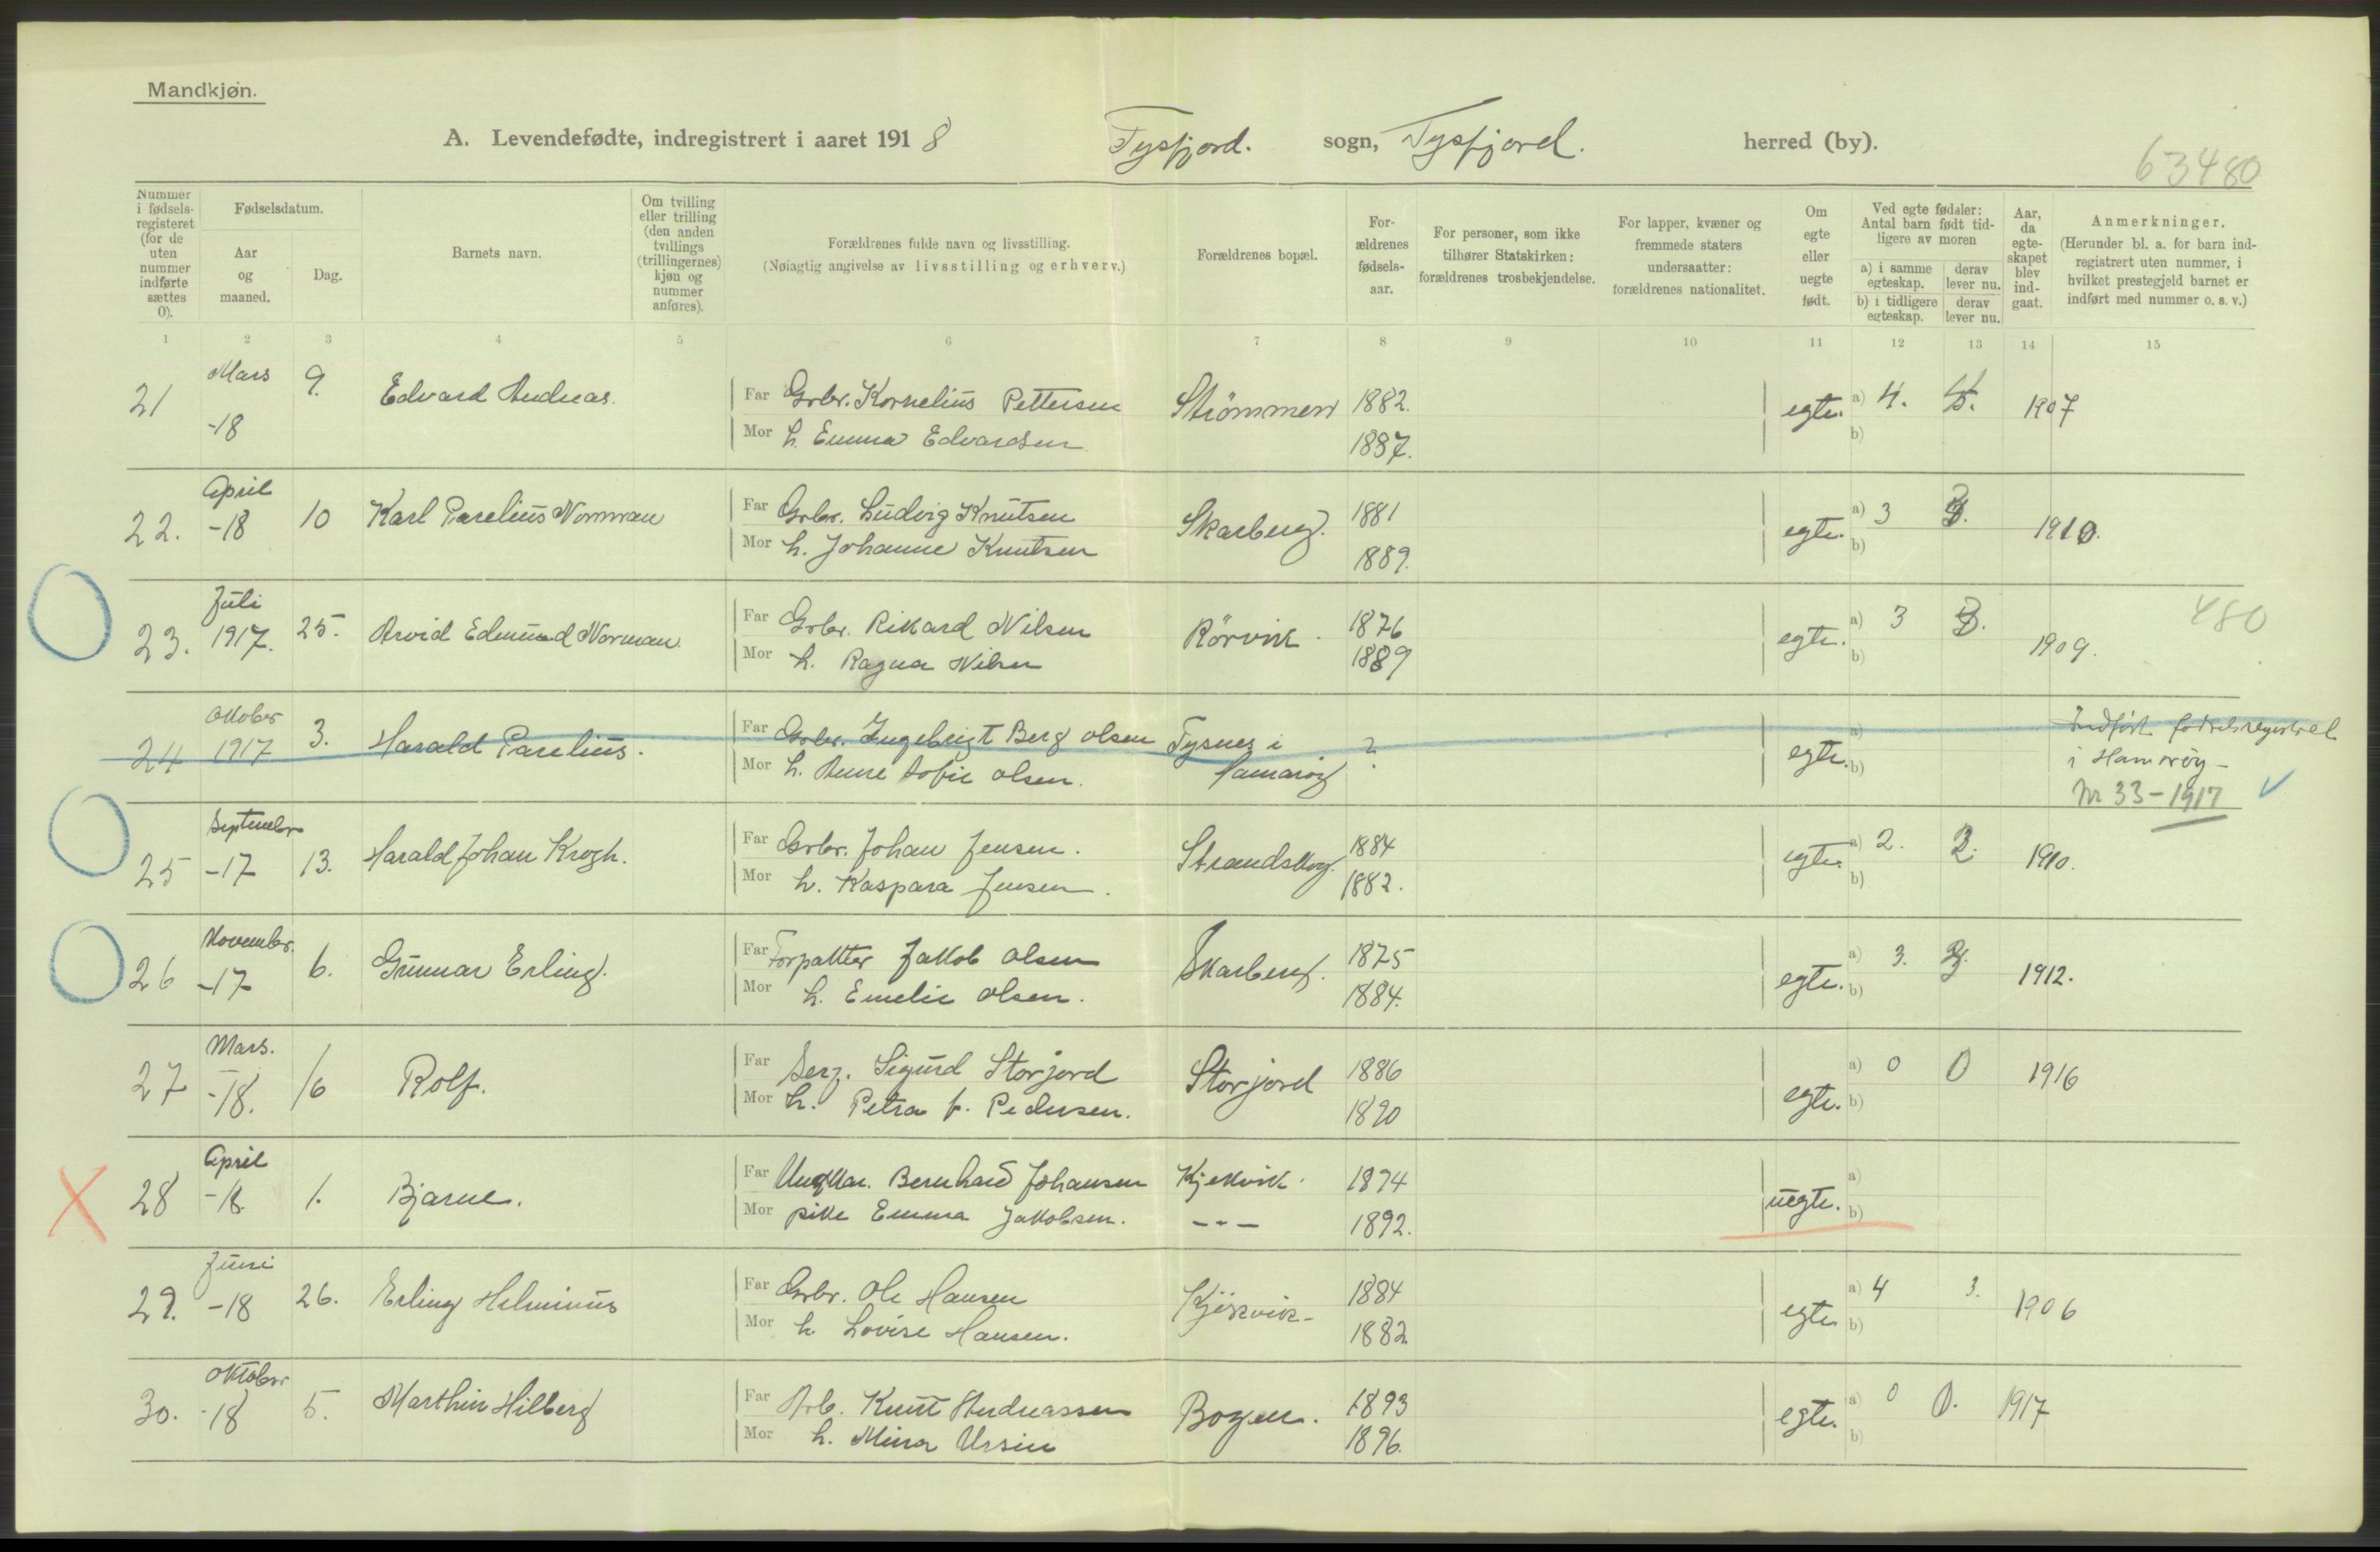 Mandkjøn.
A. Levendefødte, indregistrert i aaret 1918 Tysfjord. sogn, Tysfjord. herred (by).
63480
Nummer i fødsels-registeret (for de uten nummer indførte sættes 0).
Fødselsdatum.
Aar og maaned.
Dag.
Barnets navn.
Om tvilling eller trilling (den anden tvillings (trillingernes) kjøn og nummer anføres).
Forældrenes fulde navn og livsstilling.
(Nøiagtig angivelse av livsstilling og erhverv.)
Forældrenes bopæl.
For-ældrenes fødsels-aar.
For personer, som ikke tilhører Statskirken: forældrenes trosbekjendelse.
For lapper, kvæner og fremmede staters undersaatter: forældrenes nationalitet.
Om egte eller uegte født.
Ved egte fødsler: Antal barn født tid-ligere av moren
a) i samme egteskap. derav lever nu.
b) i tidligere egteskap. derav lever nu.
Aar, da egte-skapet blev ind-gaat.
Anmerkninger.
(Herunder bl. a. for barn ind-registrert uten nummer, i hvilket prestegjeld barnet er indført med nummer o. s. v.)
1 2 3 4 5 6 7 8 9 10 11 12 13 14 15
21 Mars -18 9. Edvard Andreas. Far Grbr. Kornelius Pettersen Strömmen 1882. egte. a) 4. 1907
Mor h. Emma Edvardsen 1887. b)
22. April -18 10 Karl Parelius Norman Far Grbr. Ludvig Knutsen Skarberg. 1881 egte. a) 3 3. 1910.
Mor h. Johanne Knutsen 1889. b)
23. Juli 1917. 25. Arvid Edmund Norman. Far Grbr. Rikard Nilsen Rörvik. 1876 egte. a) 3 3. 1909. 480
Mor h. Ragna Nilsen 1889 b)
24 Oktober 1917 3. Harald Parelius. Far Grbr. Ingebrigt Berg olsen Tysnes i ? egte. a) Indført. fødselsregistret
Mor h. Anne Sofie olsen. Hamaröy b) i Hamröy -
Nr 33 - 1917
25 Septembr. -17 13. Harald Johan Krogh. Far Grbr. Johan Jensen. Strandskog. 1884 egte. a) 2. 2. 1910.
Mor h. Kaspara Jensen. 1882. b)
26 Novembr. -17 6. Gunnar Erling. Far Forpakter Jakob Olsen Skarberg. 1875 egte. a) 3. 3. 1912.
Mor h. Emelie Olsen. 1884. b)
27 Mars. -18. 16 Rolf. Far Serg. Sigurd Storjord Storjord 1886 egte. a) 0 0 1916
Mor h. Petra f. Pedersen. 1890 b)
28 April -18. 1. Bjarne. Far Ungkar. Bernhard Johansen Kjekvik. 1894 uegte. a)
Mor pike Emma Jakobsen. - - - 1892. b)
29. Juni -18 26. Erling Helminus Far Grbr. Ole Hansen Kjökvik- 1884 egte a) 4 3. 1906
Mor h. Lovise Hansen. 1882. b)
30. oktober -18 5. Marthin Hilberg Far Arb. Knut Andreassen Bogen. 1893 egte. a) 0 0. 1917
Mor h. Mina Ursin 1896. b)